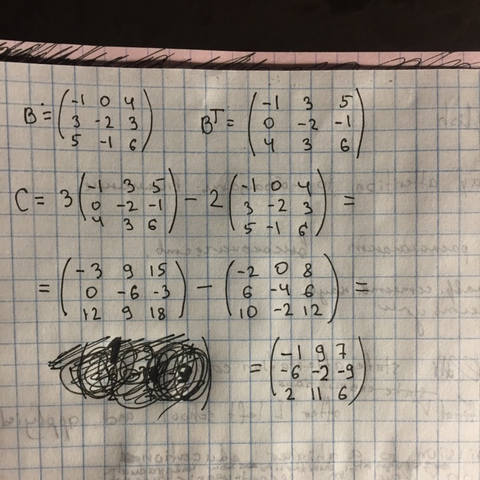 B = (-1 0 4; 3 -2 3; 5 -1 6) B^T = (-1 3 5; 0 -2 -1; 4 3 6)
C = 3 (-1 3 5; 0 -2 -1; 4 3 6) - 2 (-1 0 4; 3 -2 3; 5 -1 6) =
= (-3 9 15; 0 -6 -3; 12 9 18) - (-2 0 8; 6 -4 6; 10 -2 12) =
= (-1 9 7; -6 -2 -9; 2 11 6)